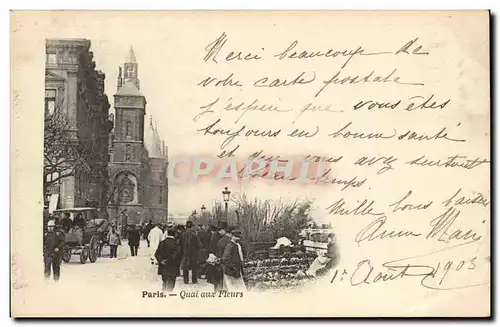 Merci beaucoup de
votre carte postale
j'espère que vous êtes
toujours en bonne santé
et que vous avez surtout
beau temps
Mille bons baisers
Anne Marie
1er Août 1903
CPAPHIL.COM
Paris. — Quai aux Fleurs